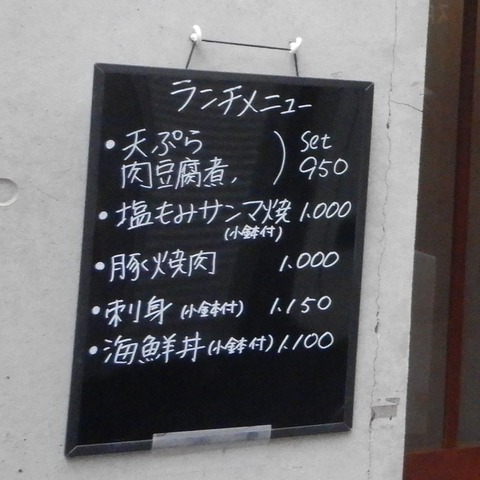 ランチメニュー
• 天ぷら ) Set
肉豆腐煮, 950
• 塩もみサンマ焼 1.000
(小鉢付)
• 豚焼肉 1.000
• 刺身 (小鉢付) 1.150
• 海鮮丼 (小鉢付) 1.100